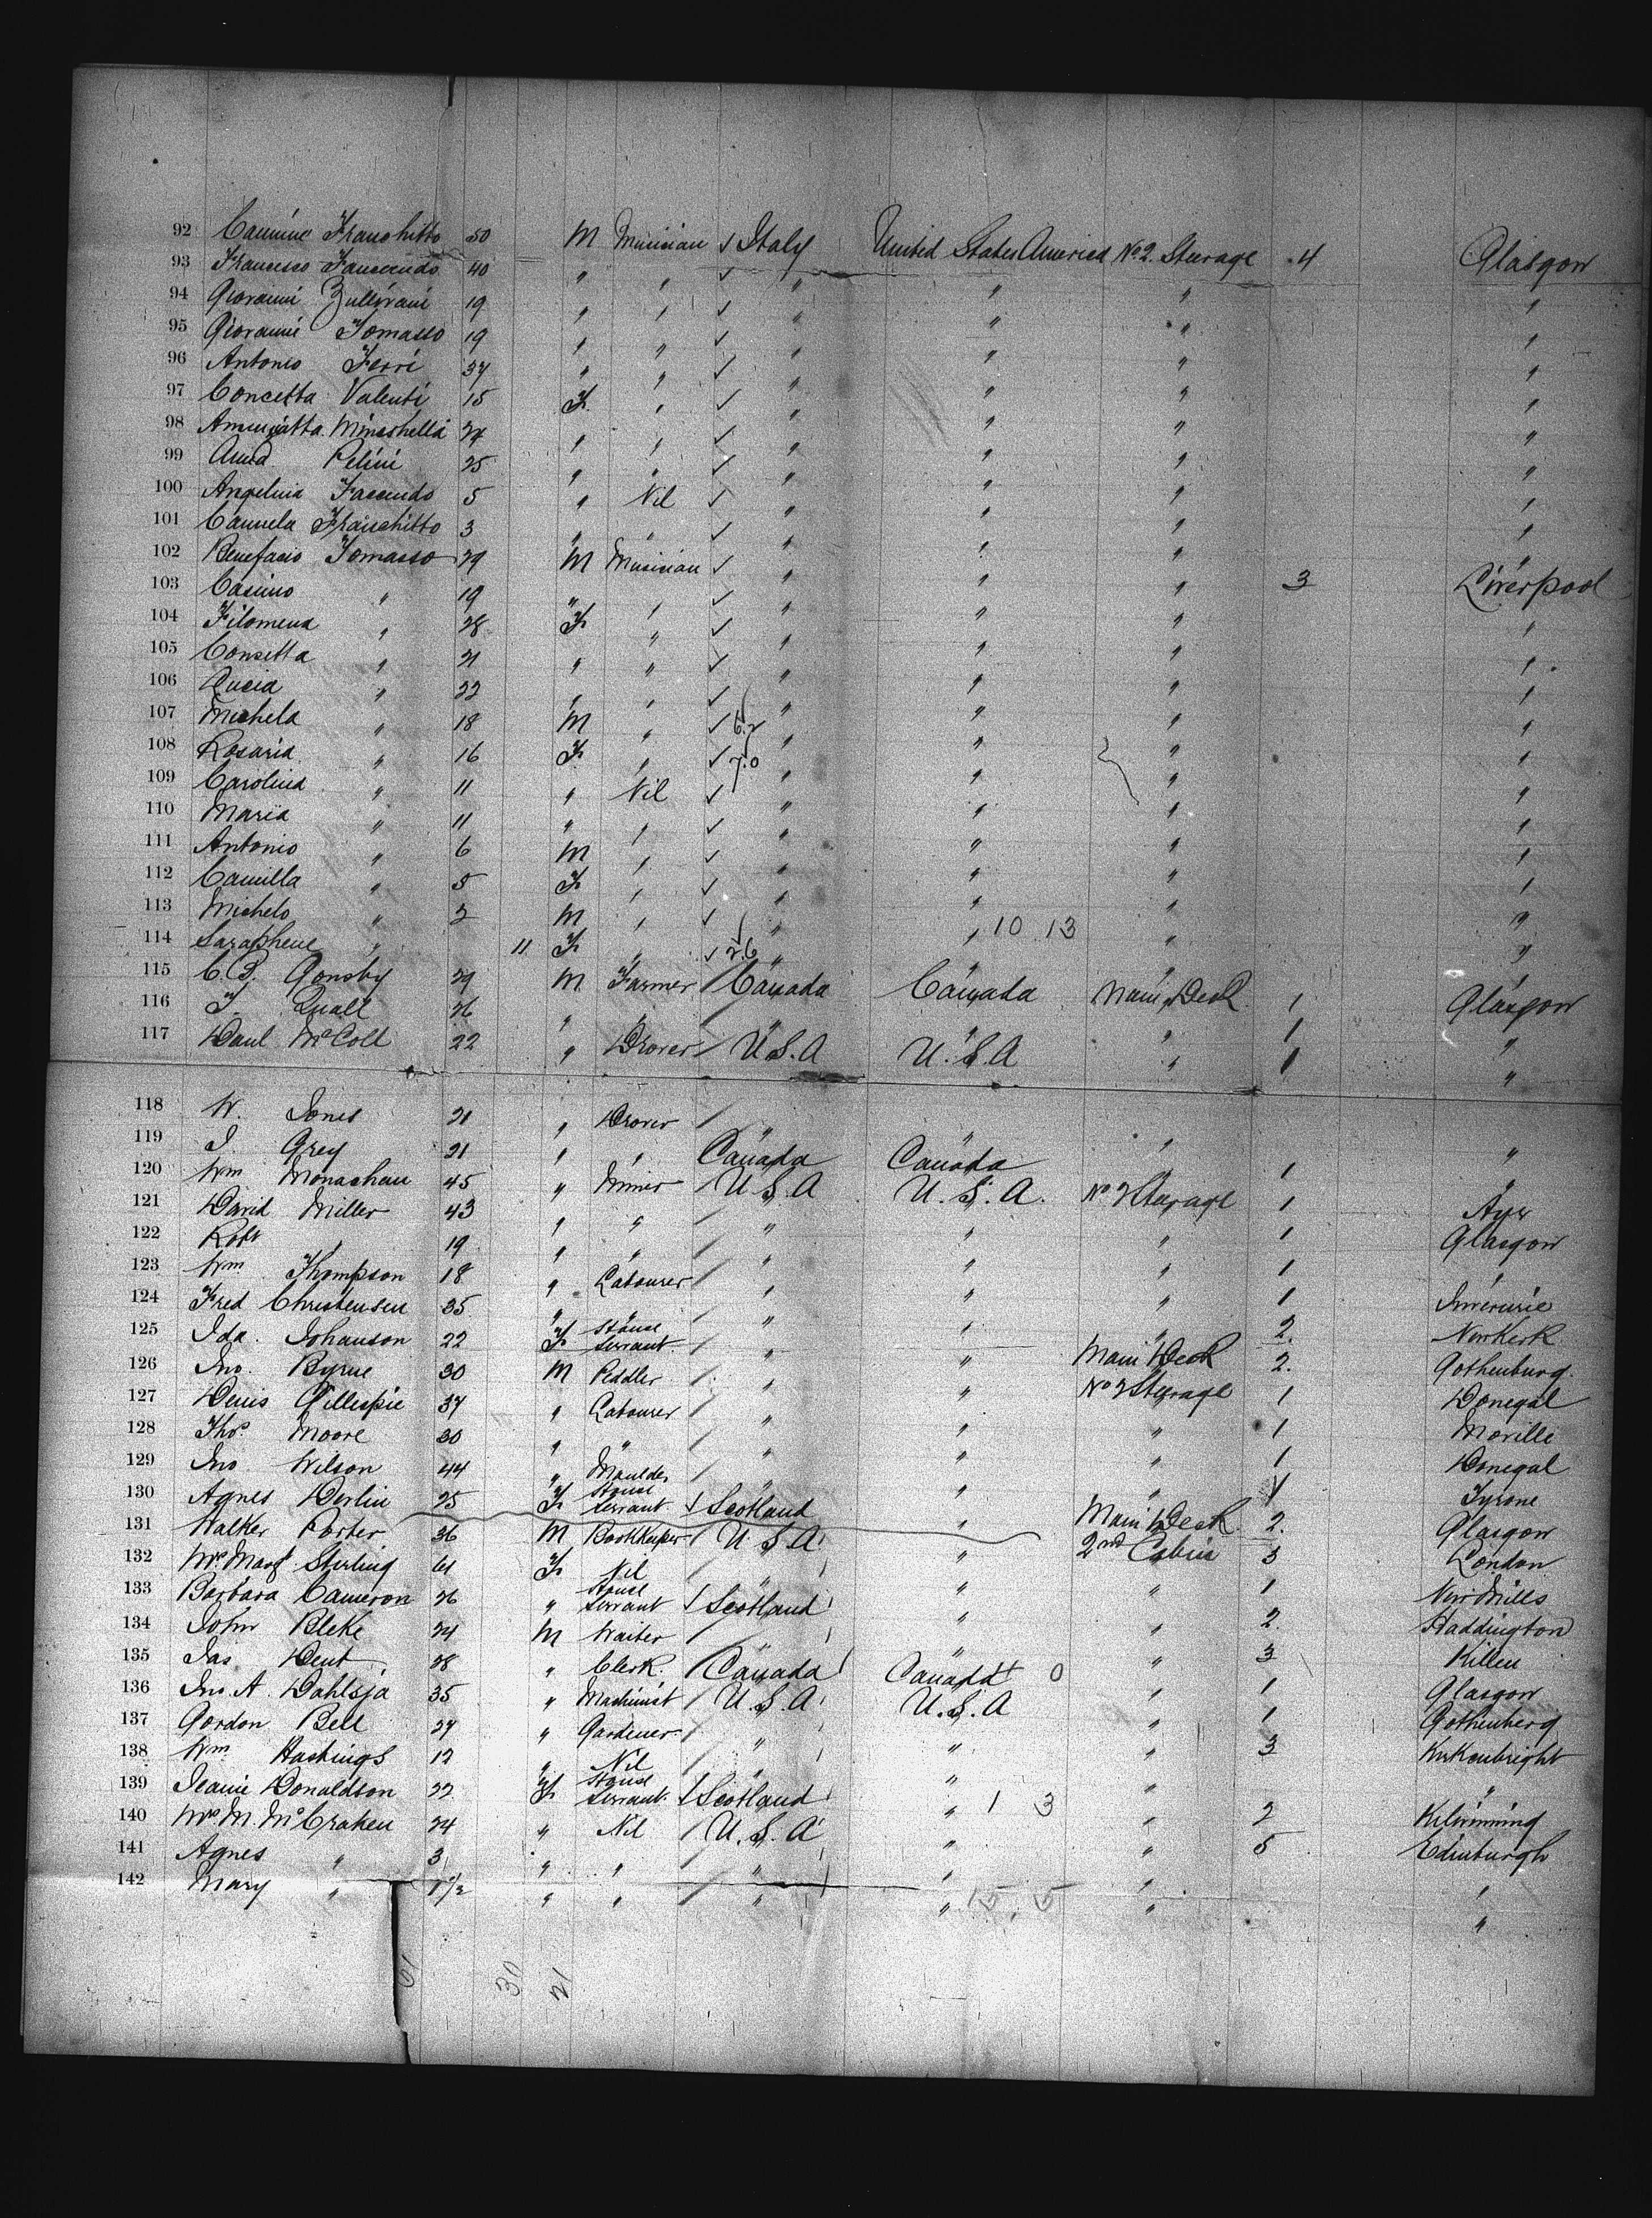 92 Carmine Franchitto 50 M Musician √ Italy United States America No 2. Steerage 4 Glasgow
93 Francesco Faucendo 40 " " √ " " " "
94 Giovanni Zullirani 19 " " √ " " " "
95 Giovanni Tomasso 19 " " √ " " " "
96 Antonio Ferri 37 " " √ " " " "
97 Concetta Valenti 15 F. " √ " " " "
98 24 " " √ " " " "
99 Anna Pelini 25 " " √ " " " "
100 Angelina Facendo 5 " Nil √ " " " "
101 Carmela Franchitto 3 " " √ " " " "
102 Benefacio Tomasso 29 M Musician √ " " " 3 Liverpool
103 Casimo " 19 " " √ " " " "
104 Filomena " 28 F " √ " " " "
105 Consetta " 21 " " √ " " " "
106 Lucia " 22 " " √ " " " "
107 Michela " 18 M " √ 6.2 " " " "
108 Rosaria " 16 F " √ 7.0 " " " "
109 Carolina " 11 " Nil √ " " " "
110 Maria " 11 " " √ " " " "
111 Antonio " 6 M " √ " " " "
112 Camilla " 5 F " √ " " " "
113 Michelo " 2 M " √ " " 10 13 " "
114 Saraphene " 11 F " √ 26 " " " "
115 C. B. Gonsby 29 M Farmer / Canada Canada Main Deck 1 Glasgow
116 T. Quall 26 " " / " " " 1 "
117 Danl McColl 22 " Drover / U.S.A U.S.A " 1 "
118 W. Jones 21 " Drover / " " " "
119 J. Grey 21 " " Canada Canada " 1 "
120 Wm Monaghan 45 " Miner / U.S.A U.S.A. No 2 Steerage 1 Ayr
121 David Miller 43 " " / " " " 1 Glasgow
122 Robt " 19 " " / " " " 1 "
123 Wm Thompson 18 " Labourer / " " " 1 Inverurie
124 Fred Christensen 35 " " / " " " 2. Newkerk
125 Ida. Johanson 22 F House Servant / " " Main Deck 2. Gothenburg.
126 Jno. Byrne 30 M Peddler / " " No 2 Steerage 1 Donegal
127 Denis Gillespie 37 " Labourer / " " " 1 Moville
128 Thos Moore 30 " " / " " " 1 Donegal
129 Jno Wilson 44 " Moulder / " " " 1 Tyrone
130 Agnes Devlin 25 F House Servant √ Scotland " Main Deck 2. Glasgow
131 Walker Porter 36 M Bookkeeper / U.S.A " 2nd Cabin 3 London
132 Mrs Margt Sterling 61 F Nil / " " " 1 Newmills
133 Barbara Cameron 26 " House Servant √ Scotland " " 2. Haddington
134 John Bleke 24 M Waiter / " " " 3 Killen
135 Jas Dent 28 " Clerk. / Canada Canada 0 " 1 Glasgow
136 Jno. A. Dahlsja 35 " Machinist / U.S.A U.S.A " 1 Gothenberg
137 Gordon Bell 27 " Gardener / " " " 3 Kirkcubright
138 Wm Hastings 12 " Nil / " " " "
139 Jeanie Donaldson 22 F House Servant √ Scotland " 1 3 " 2 Kilwinning
140 Mrs M. McCraken 24 " Nil / U.S.A " " 5 Edinburgh
141 Agnes " 3 " " / " " " "
142 Mary " 1 1/2 " " / " " 15. 5 " "
61 30 21